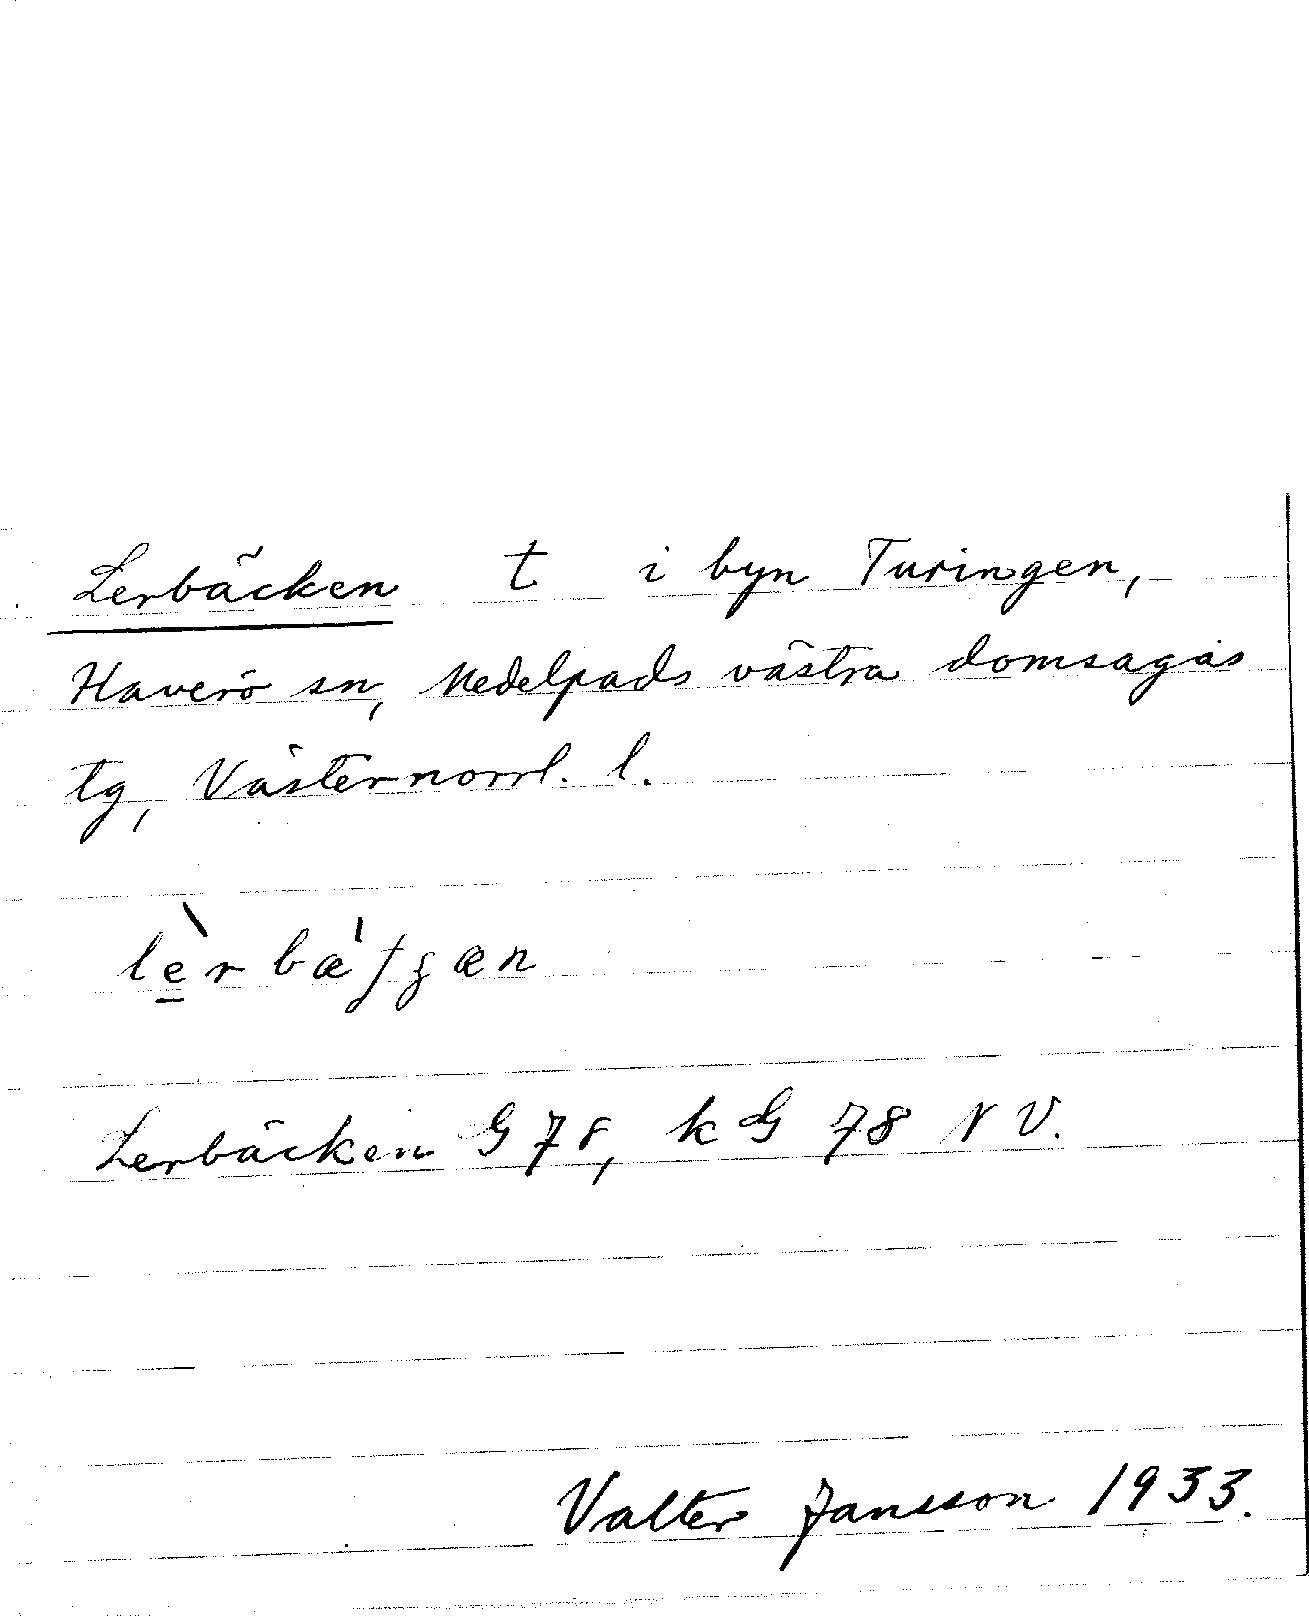 Lerbäcken t i byn Turingen,
Haverö sn, Medelpads västra domsagas
tg, Västernorrl. l.
lè̱rbæ̀ʃʒæn
Lerbäcken G 78, k G 78 N V.
Valter Jansson 1933.